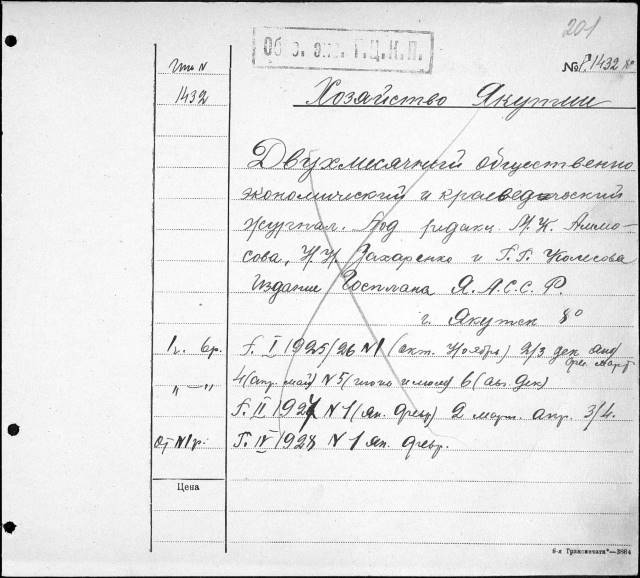 201
Обяз. экз. Г.Ц.К.П.
№ Р.1432
1432
Хозяйство Якутии
Двухмесячный общественно
экономический и краеведческий
журнал. Под редакц. М. К. Аммо-
сова, Н. Н. Захаренко и Г. Г. Колесова
Издание Госплана Я.А.С.С.Р.
г. Якутск 8°
1 г. 6 р. Г. I 1925/26 N1 (окт. Ноябрь) 2/3 дек янв
фев. март
" — " 4 (апр. май) N5 (июнь июль) 6 (ав. дек)
Г. II 1927 N1 (ян. февр) 2 март. апр. 3/4.
От N 1 р. Г. IV 1928 N1 ян. февр.
Цена
6-я Транспечати"—3864